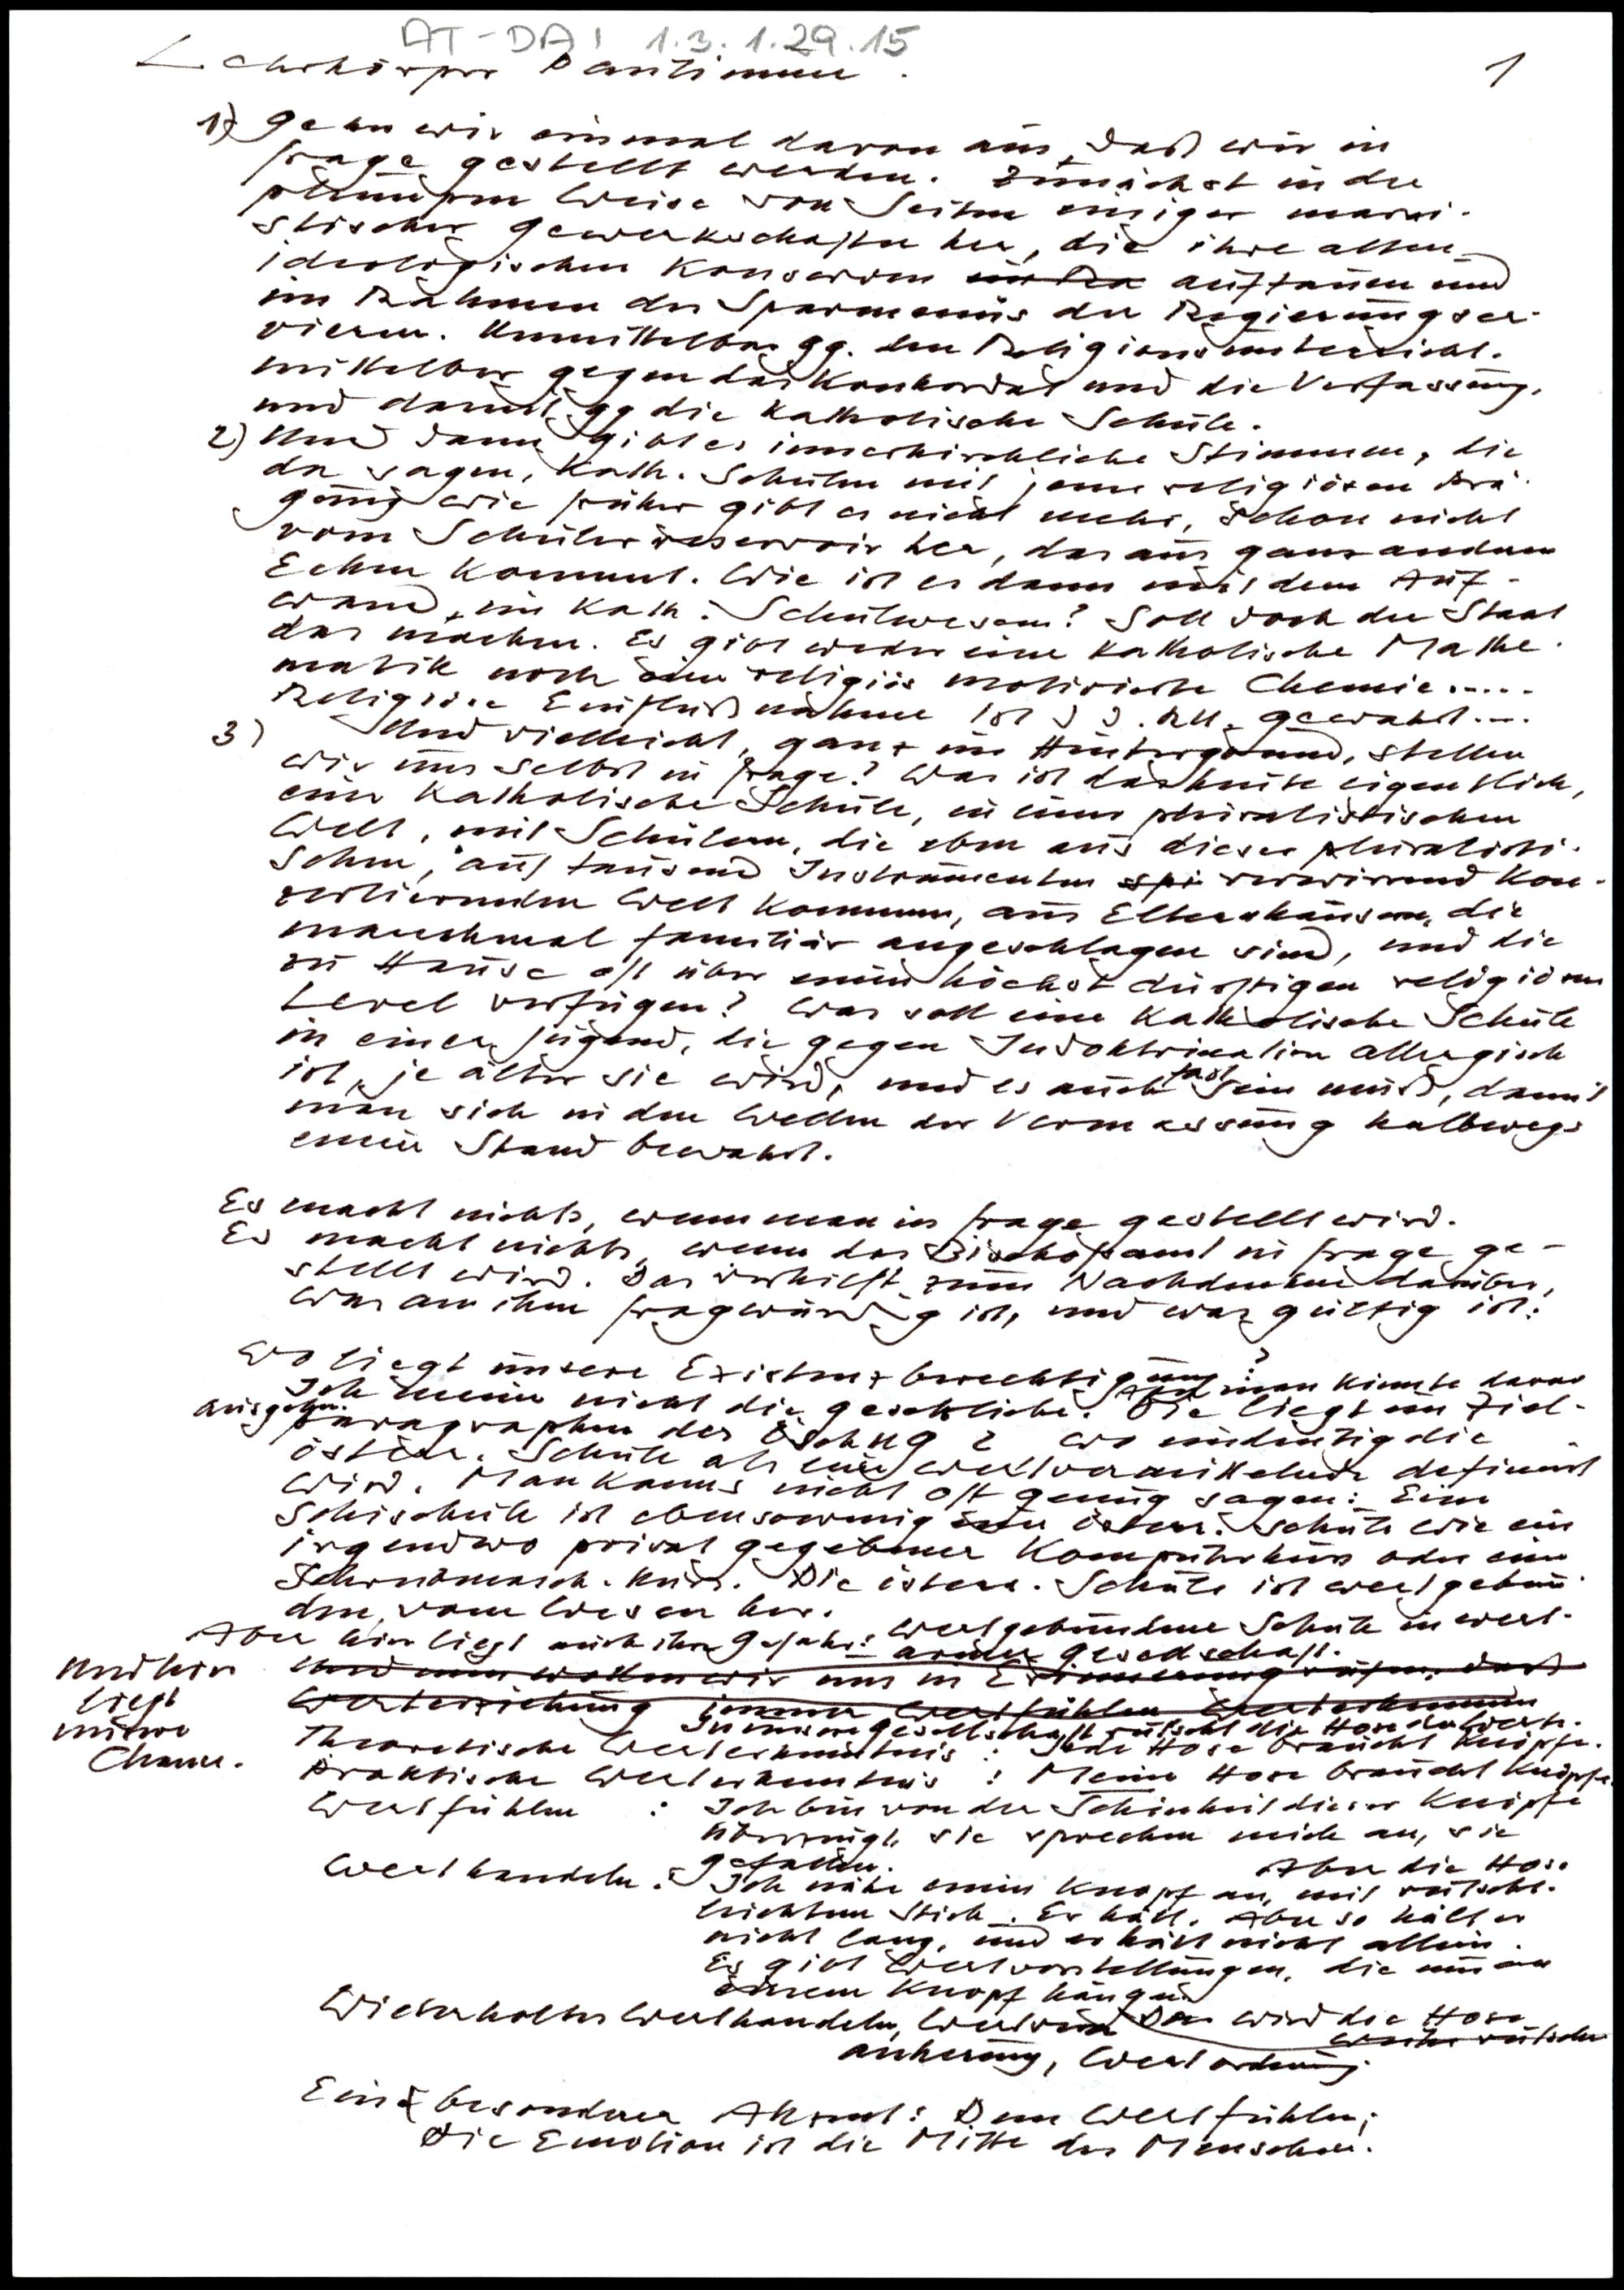 AT-DAI 1.3.1.29.15
Lehrkörper Pontinum.
1
1) Gehn wir einmal davon aus, daß wir in
Frage gestellt werden. Zunächst in der
plumpen Weise von Seiten einiger marxi-
stischer Gewerkschafter her, die ihre alten
ideologischen Konserven auftauen und
im Rahmen des Sparmenüs der Regierung ser-
vieren. Unmittelbar gg. den Religionsunterricht.
mittelbar gegen das Konkordat und die Verfassung,
und damit gg die katholische Schule.
2) Und dann gibt es innerkirchliche Stimmen, die
da sagen, kath. Schulen mit jener religiösen Prä-
gung wie früher gibt es nicht mehr, schon nicht
vom Schülerreservoir her, das aus ganz anderen
Ecken kommt. Wie ist es dann mit dem Auf-
wand, ein kath. Schulwesen? Soll doch der Staat
das machen. Es gibt weder eine katholische Mathe-
matik noch eine religiös motivierte Chemie.....
Religiöse Einflußnahme ist d. d. RU. gewahrt....
3) Und vielleicht, ganz im Hintergrund, stellen
wir uns selbst in Frage? Was ist das heute eigentlich,
eine katholische Schule, in einer pluralistischen
Welt, mit Schülern, die eben aus dieser pluralisti-
schen, auf tausend Instrumenten verwirrend kon-
zertierenden Welt kommen, aus Elternhäusern, die
manchmal familiär angeschlagen sind, und die
zu Hause oft über einen höchst dürftigen religiösen
Level verfügen? Was soll eine katholische Schule
in einer Jugend, die gegen Indoktrination allergisch
ist, je älter sie wird, und es auch fast sein muß, damit
man sich in den Wellen der Vermassung halbwegs
einen Stand bewahrt.
Es macht nichts, wenn man in Frage gestellt wird.
Es macht nichts, wenn das Bischofsamt in Frage ge-
stellt wird. Das verhilft zum Nachdenken darüber,
was an ihm fragwürdig ist, und was gültig ist.
Wo liegt unsere Existenzberechtigung?
Ich meine nicht die gesetzliche. Aber man könnte davon
ausgehn. Die liegt im Ziel-
paragraphen des ÖSchUG 2 wo eindeutig die
österr. Schule als eine wertvermittelnde definiert
wird. Man kanns nicht oft genug sagen: Eine
Schischule ist ebensowenig eine österr. Schule wie ein
irgendwo privat gegebener Komputerkurs oder ein
Schreibmasch. Kurs. Die österr. Schule ist wertgebun-
den, vom Wesen her.
Aber hier liegt auch ihre Gefahr: Wertgebundene Schule in wert-
armer Gesellschaft.
Und hier
liegt
unsere
Chance.
Und nun wollen wir uns in Erinnerung rufen, daß
Werterziehung immer Wertfühlen Werterkennen
In unserer Gesellschaft rutscht die Hose der Werte.
Theoretische Werterkenntnis : Jede Hose braucht Knöpfe.
Praktische Werterkenntnis : Meine Hose braucht Knöpfe.
Wertfühlen : Ich bin von der Schönheit dieser Knöpfe
überzeugt, sie sprechen mich an, sie
gefallen.
Werthandeln : Ich nähe einen Knopf an, mit
leichtem Stich. Er hält. Aber so hält er
Aber die Hose
rutscht.
nicht lang, und er hält nicht allein.
Es gibt Wertvorstellungen, die nur an
einem Knopf hängen
Wiederholtes Werthandeln, Wertver-
ankerung, Wertordnung
Da wird die Hose
weiter rutschen
Ein besonderer Akzent: Dem Wertfühlen;
Die Emotion ist die Mitte des Menschen.